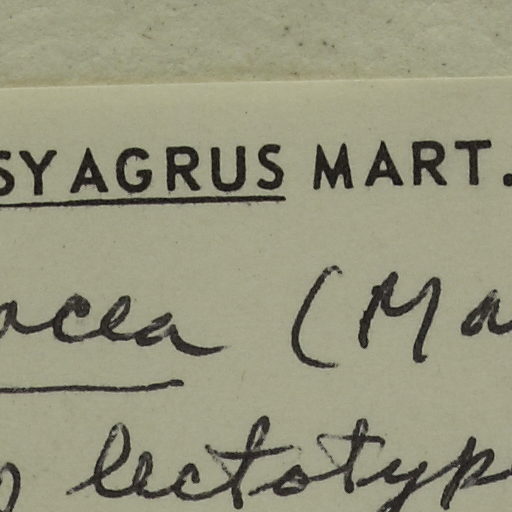 SYAGRUS MART.
acea (Ma
lectotyp